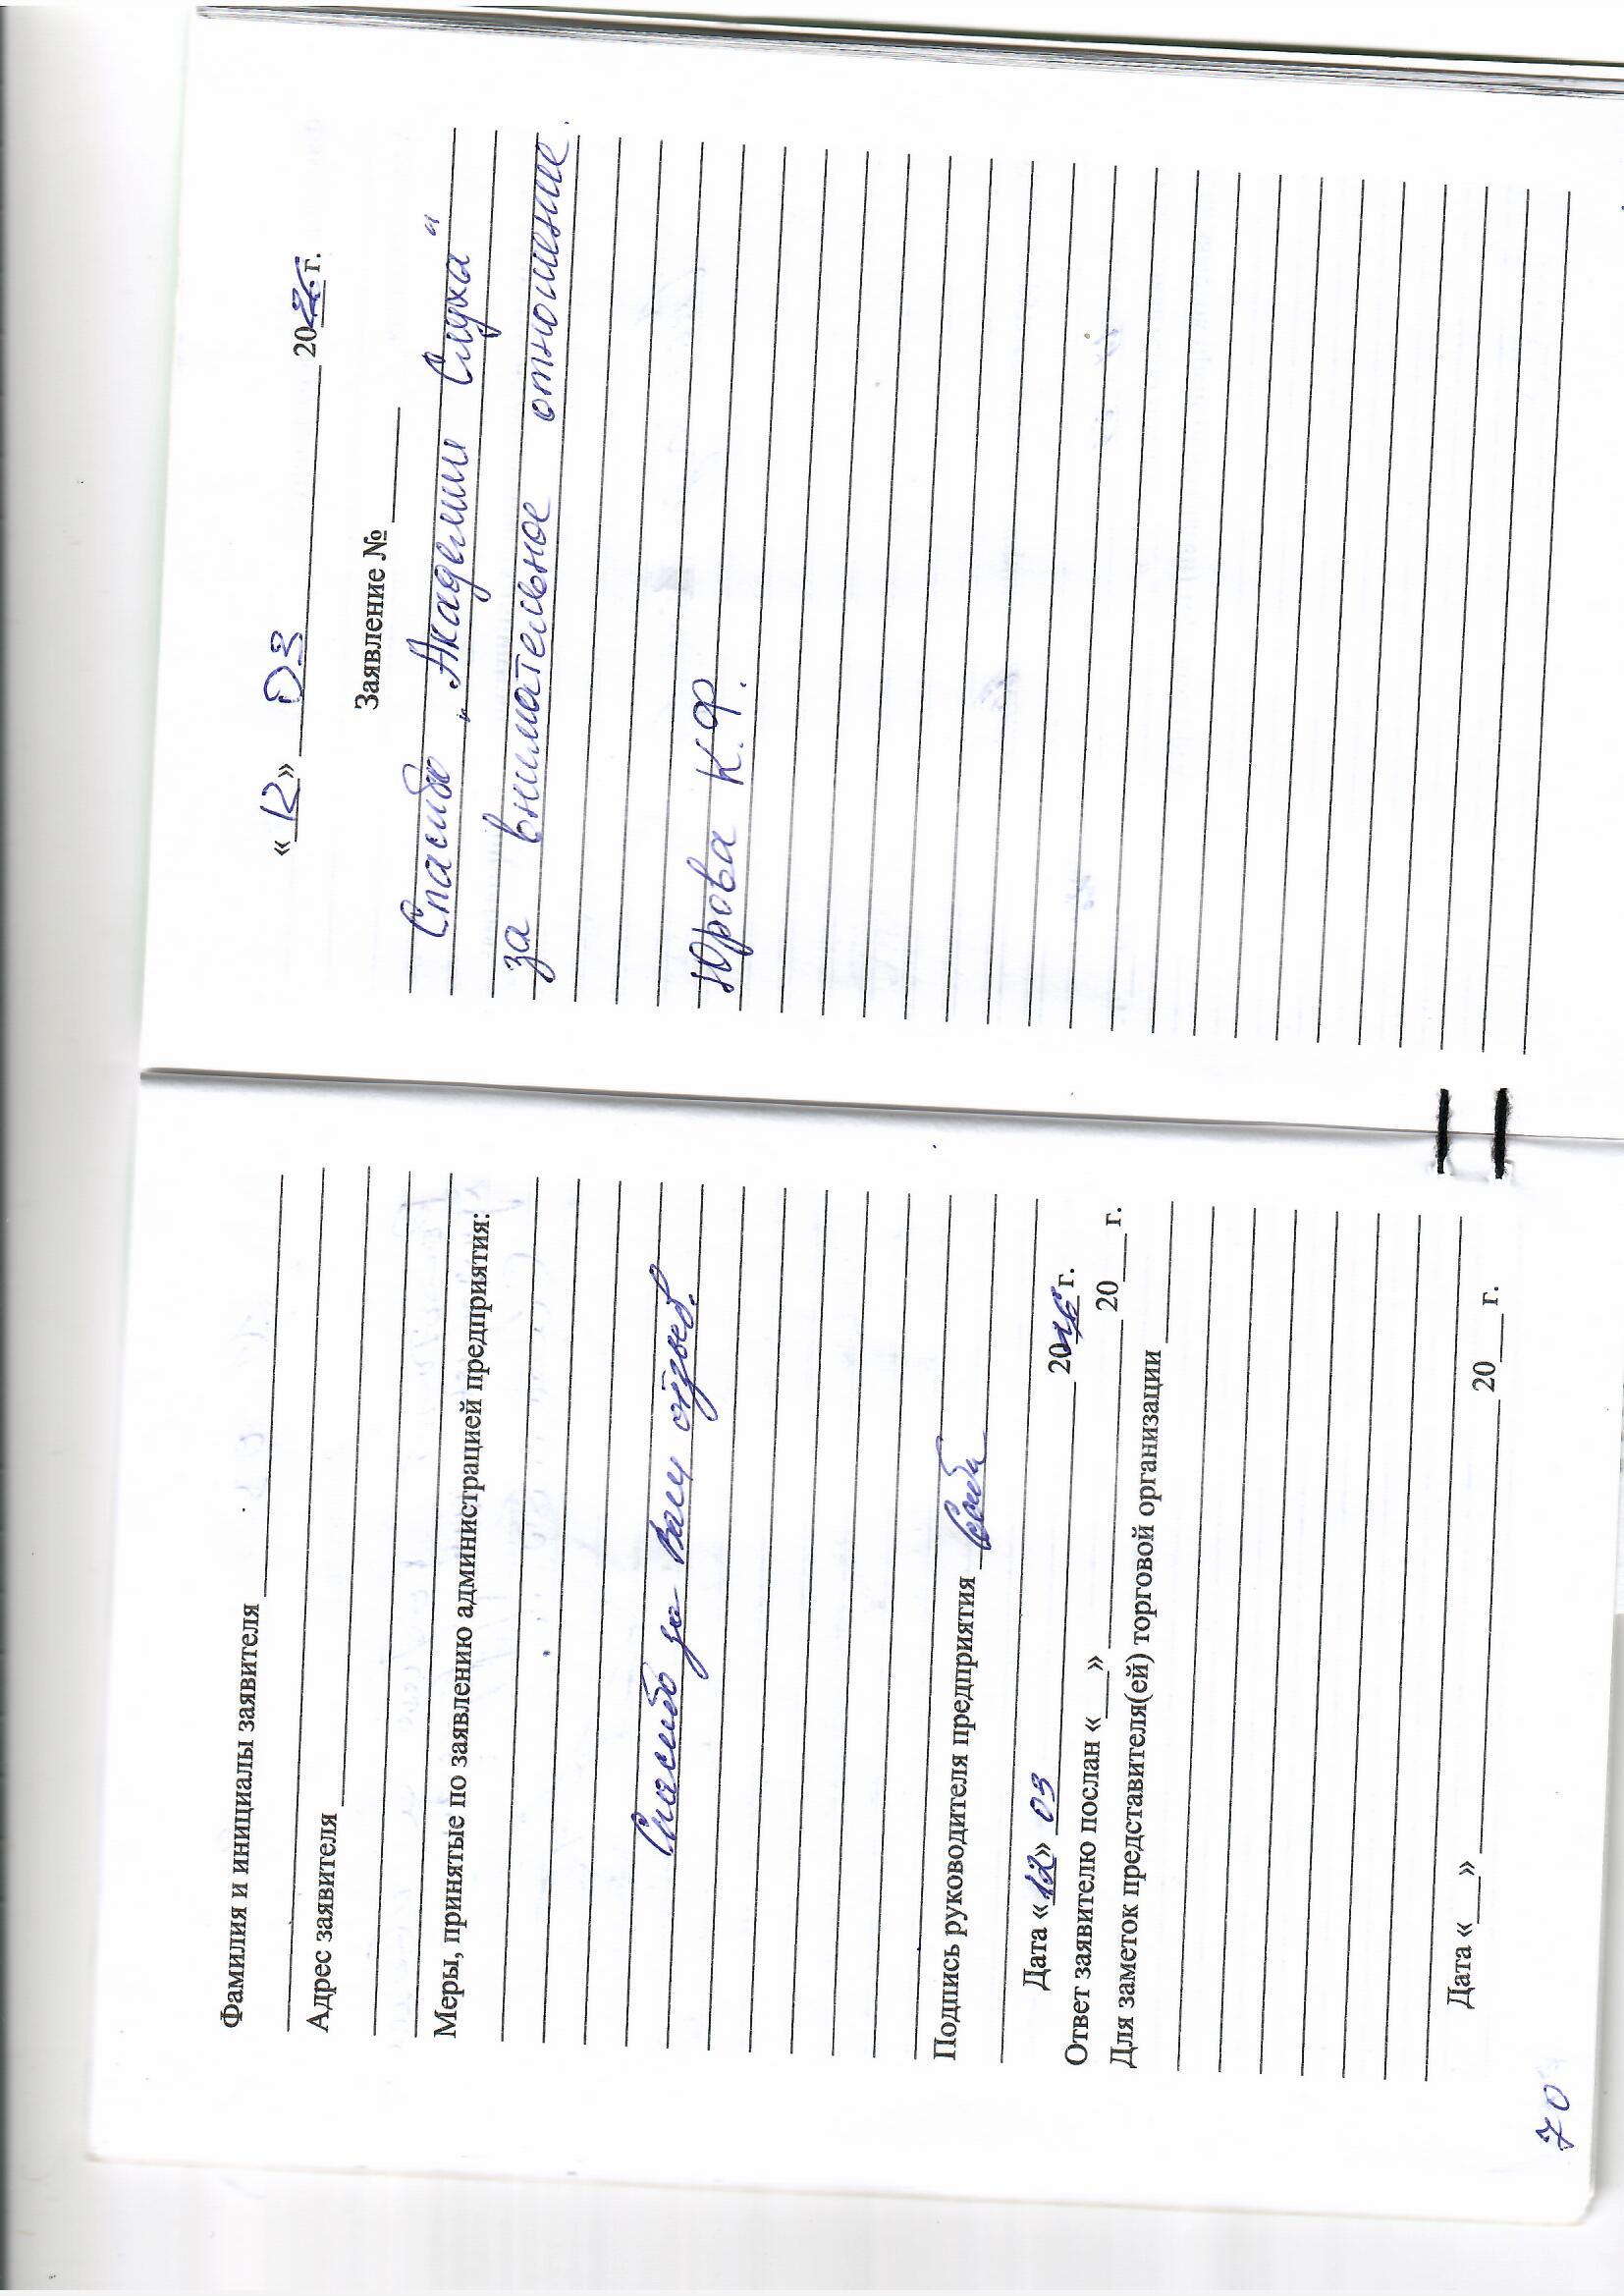 Фамилия и инициалы заявителя
Адрес заявителя
Меры, принятые по заявлению администрацией предприятия:
Спасибо за Ваш отзыв.
Подпись руководителя предприятия
Дата «12» 03 20 г.
Ответ заявителю послан «   » 20 г.
Для заметок представителя(ей) торговой организации
Дата «   » 20 г.
70
«12» 03 20 г.
Заявление №
Спасибо „Академии Слуха“
за внимательное отношение.
Юрова К.Ф.